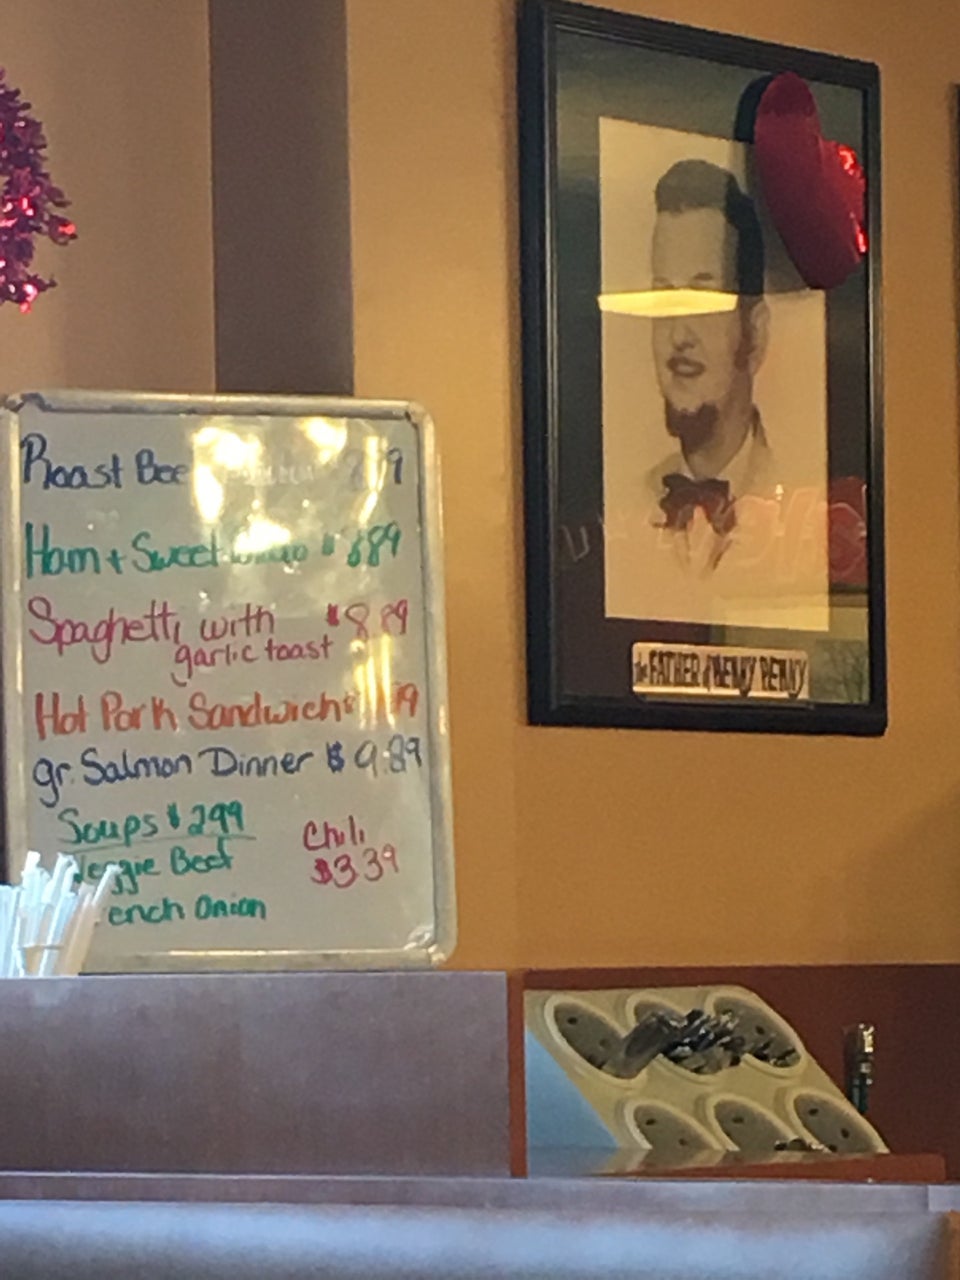 Roast Bee
Ham + Sweet $ 889
Spaghetti with $8.89
garlic toast
Hot Pork Sandwich
gr. Salmon Dinner $ 9.89
Soups $ 299
Veggie Beef
ench Onion
Chili
$3.39
the FATHER of HENNY PENNY